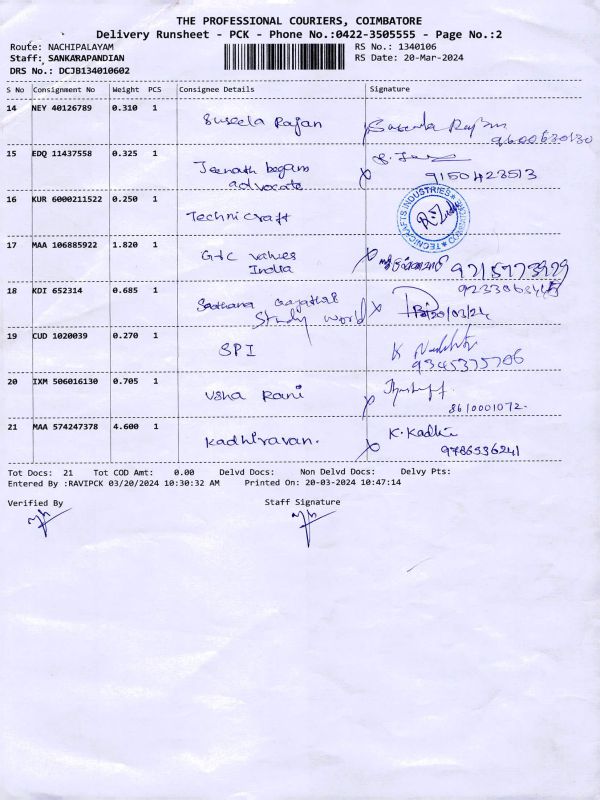 THE PROFESSIONAL COURIERS, COIMBATORE
Delivery Runsheet - PCK - Phone No.:0422-3505555 - Page No.:2
Route: NACHIPALAYAM RS No.: 1340106
Staff: SANKARAPANDIAN RS Date: 20-Mar-2024
DRS No.: DCJB134010602
S No Consignment No Weight PCS Consignee Details Signature
14 NEY 40126789 0.310 1
Suseela Rajan Suseela Rajan
9600630130
15 EDQ 11437558 0.325 1
Jeenath begam
advocate 9150423513
16 KUR 6000211522 0.250 1
Technicraft TECNICRAFTS INDUSTRIES
17 MAA 106885922 1.820 1
GTC values
India 9715773979
18 KDI 652314 0.685 1 9233063445
Sadhana
Study world 20/03/24
19 CUD 1020039 0.270 1
SPI K
9345375706
20 IXM 506016130 0.705 1
Usha Rani
8610001072.
21 MAA 574247378 4.600 1
Kadhiravan. K. Kadhi
9786536241
Tot Docs: 21 Tot COD Amt: 0.00 Delvd Docs: Non Delvd Docs: Delvy Pts:
Entered By :RAVIPCK 03/20/2024 10:30:32 AM Printed On: 20-03-2024 10:47:14
Verified By Staff Signature